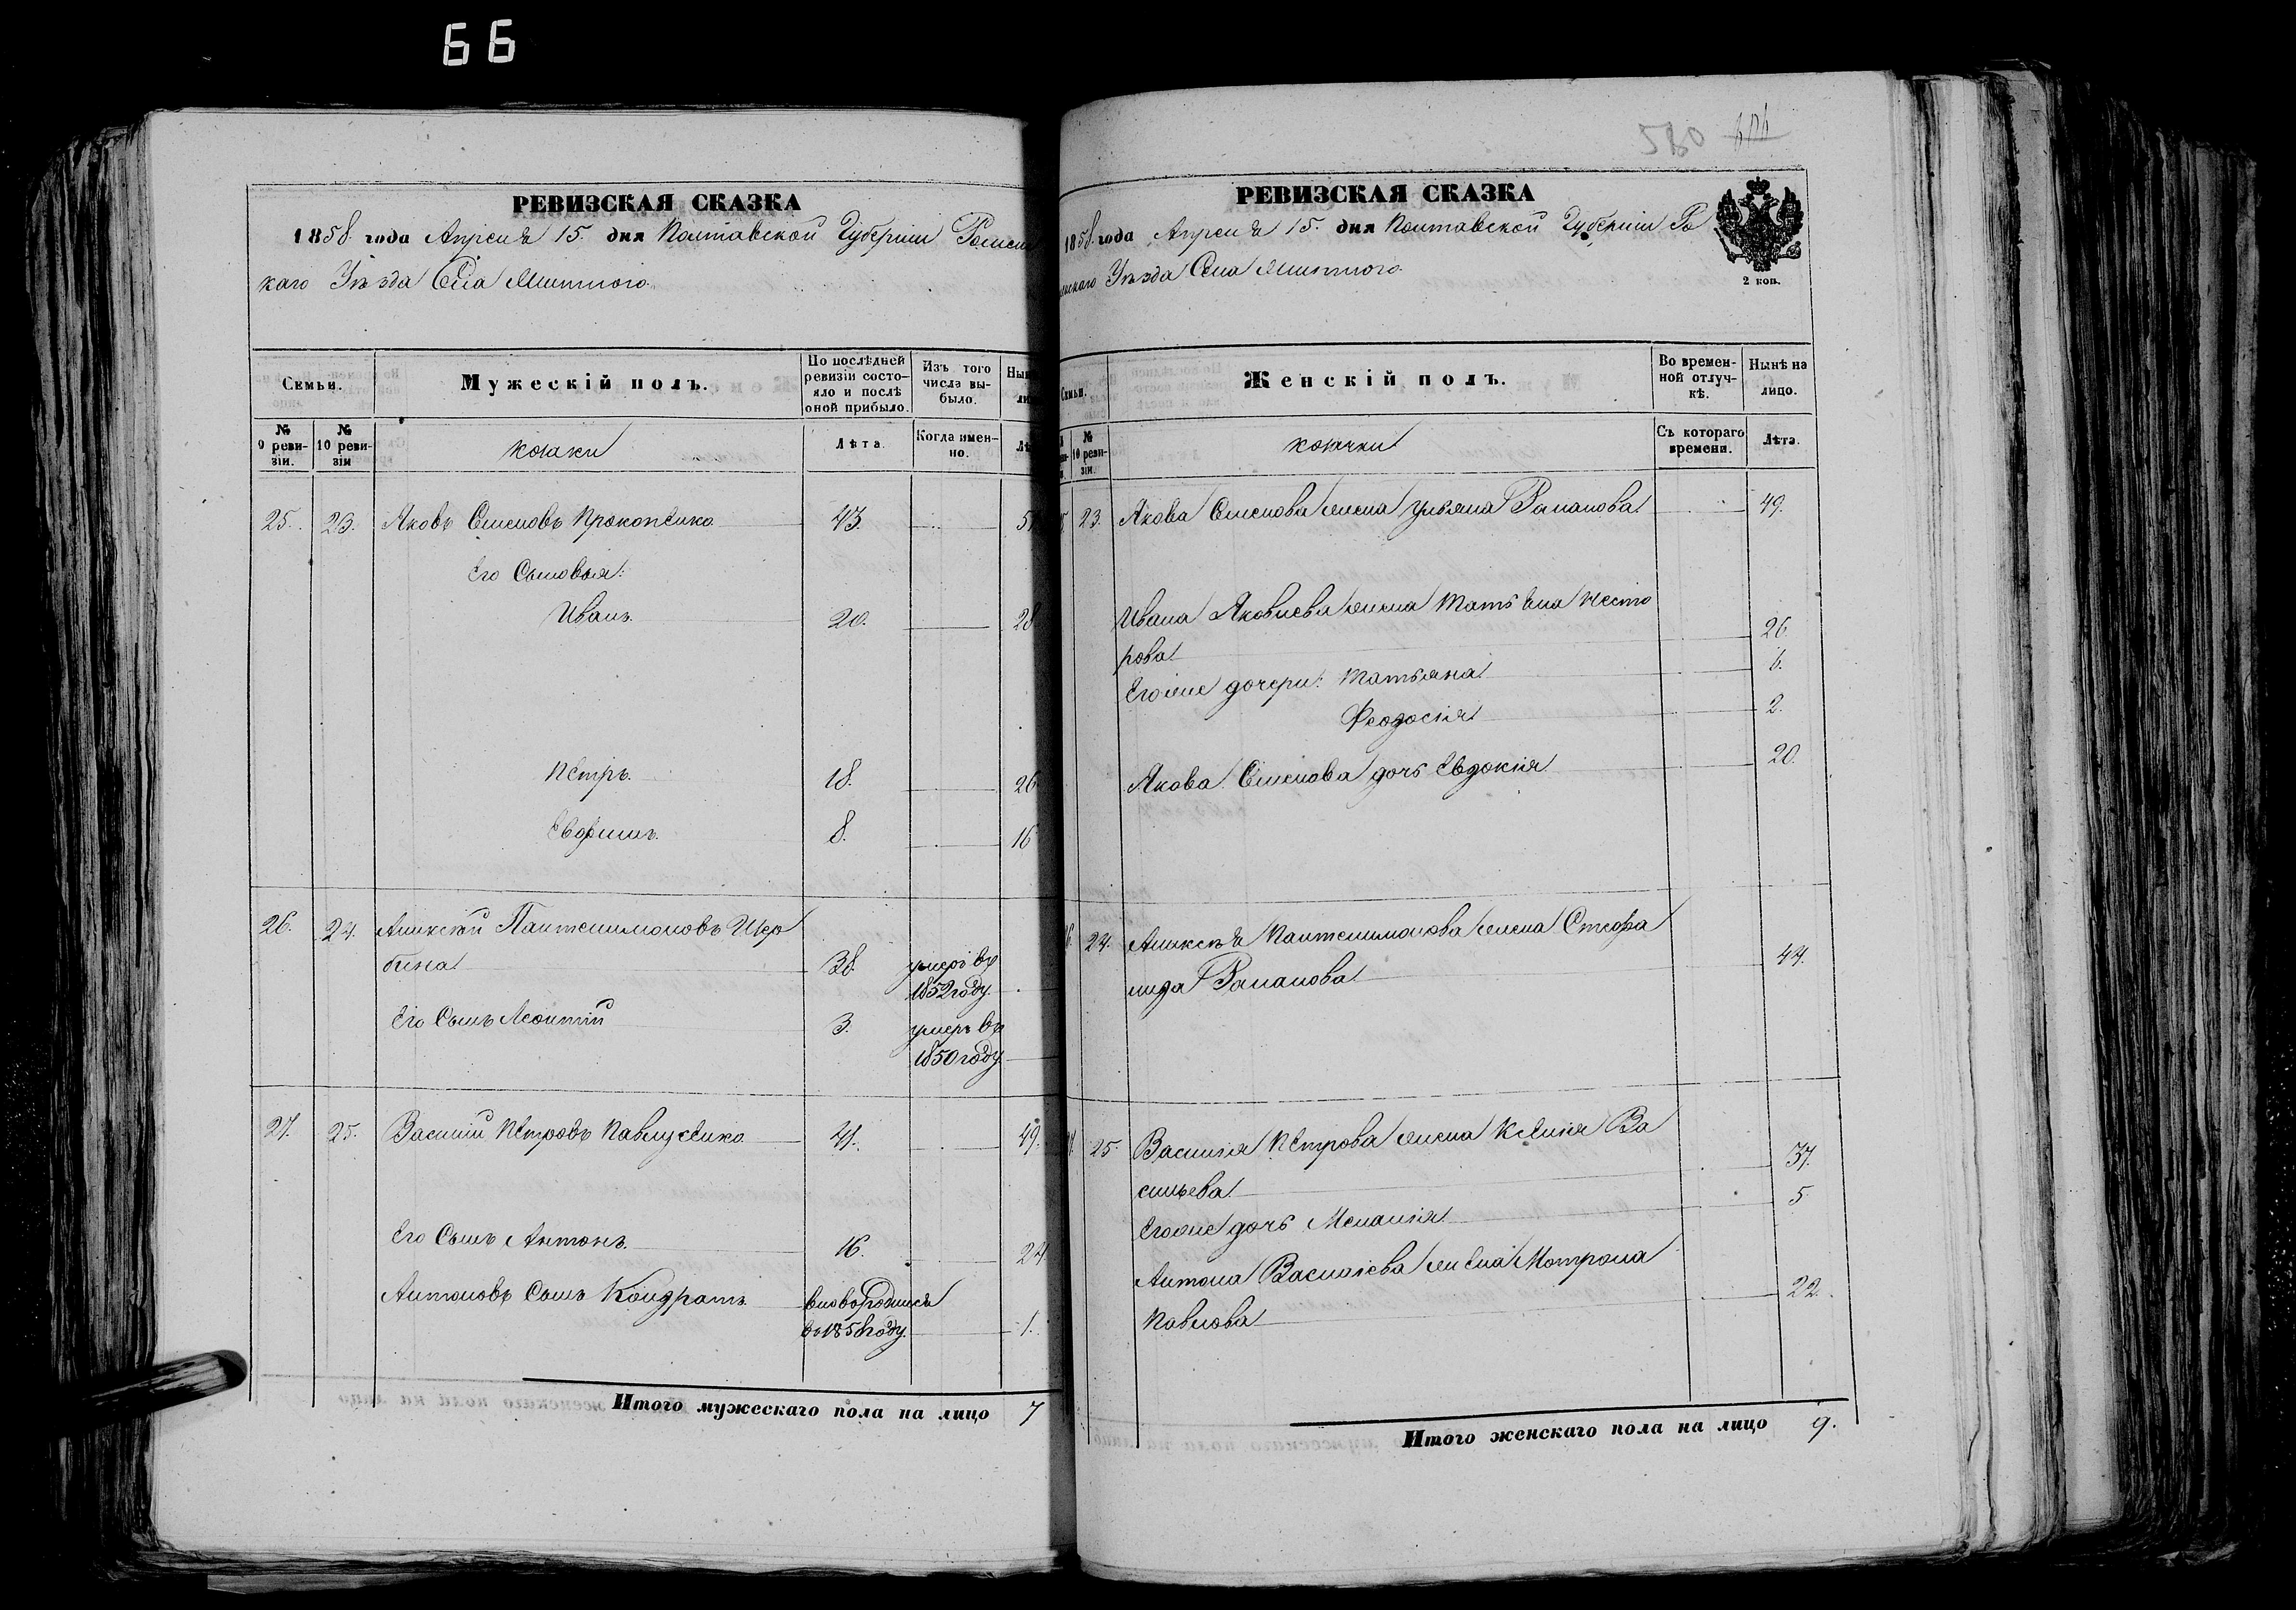 66
РЕВИЗСКАЯ СКАЗКА
1858. года Апрѣля 15. дня Полтавской Губерніи Ромен
каго Уѣзда Села
Семьи.
Мужескій полъ.
По послѣдней ревизіи состо-
яло и послѣ
оной прибыло.
Изъ того
числа вы-
было.
№
9 реви-
зіи.
№
10 реви-
зіи
козаки
Лѣта.
Когда имен-
но.
25. 23. Яковъ Семеновъ Прокопенко 43. 51
Его Сыновья:
Иванъ. 20. 28
Петръ. 18. 26
Евфимъ. 8. 16
26. 24. Алексѣй Пантелимоновъ Щер
бина 38. умеръ въ
1852 году.
Его Сынъ Леонтій 3. умеръ въ
1850 году
27. 25. Василій Петровъ Павлусенко 41. 49.
Его Сынъ Антонъ. 16. 24
Антоновъ Сынъ Кондратъ. вновь родился
году. 1.
Итого мужескаго пола на лицо 7
580
РЕВИЗСКАЯ СКАЗКА
1858. года Апрѣля 15. дня Полтавской Губерніи Ро
менскаго Уѣзда Села
2 коп.
Семьи.
Женскій полъ.
Во времен-
ной отлуч-
кѣ.
Нынѣ на
лицо.
№
10 реви-
зіи.
козачки
Съ котораго
времени.
Лѣта.
23. Якова Семенова жена Ульяна Романова 49.
Ивана Яковлева жена Татьяна Несто
рова 26.
Егоже дочери: Татьяна 6.
Феодосія 2.
Якова Семенова дочь Евдокія 20.
24. Алексѣя Пантелимонова жена Стефа
нида Романова 44.
25. Василія Петрова жена Ксенія Ва
сильева 37.
Егоже дочь Меланія 5.
Антона Василіева жена Мотрона
Павлова 22.
Итого женскаго пола на лицо 9.